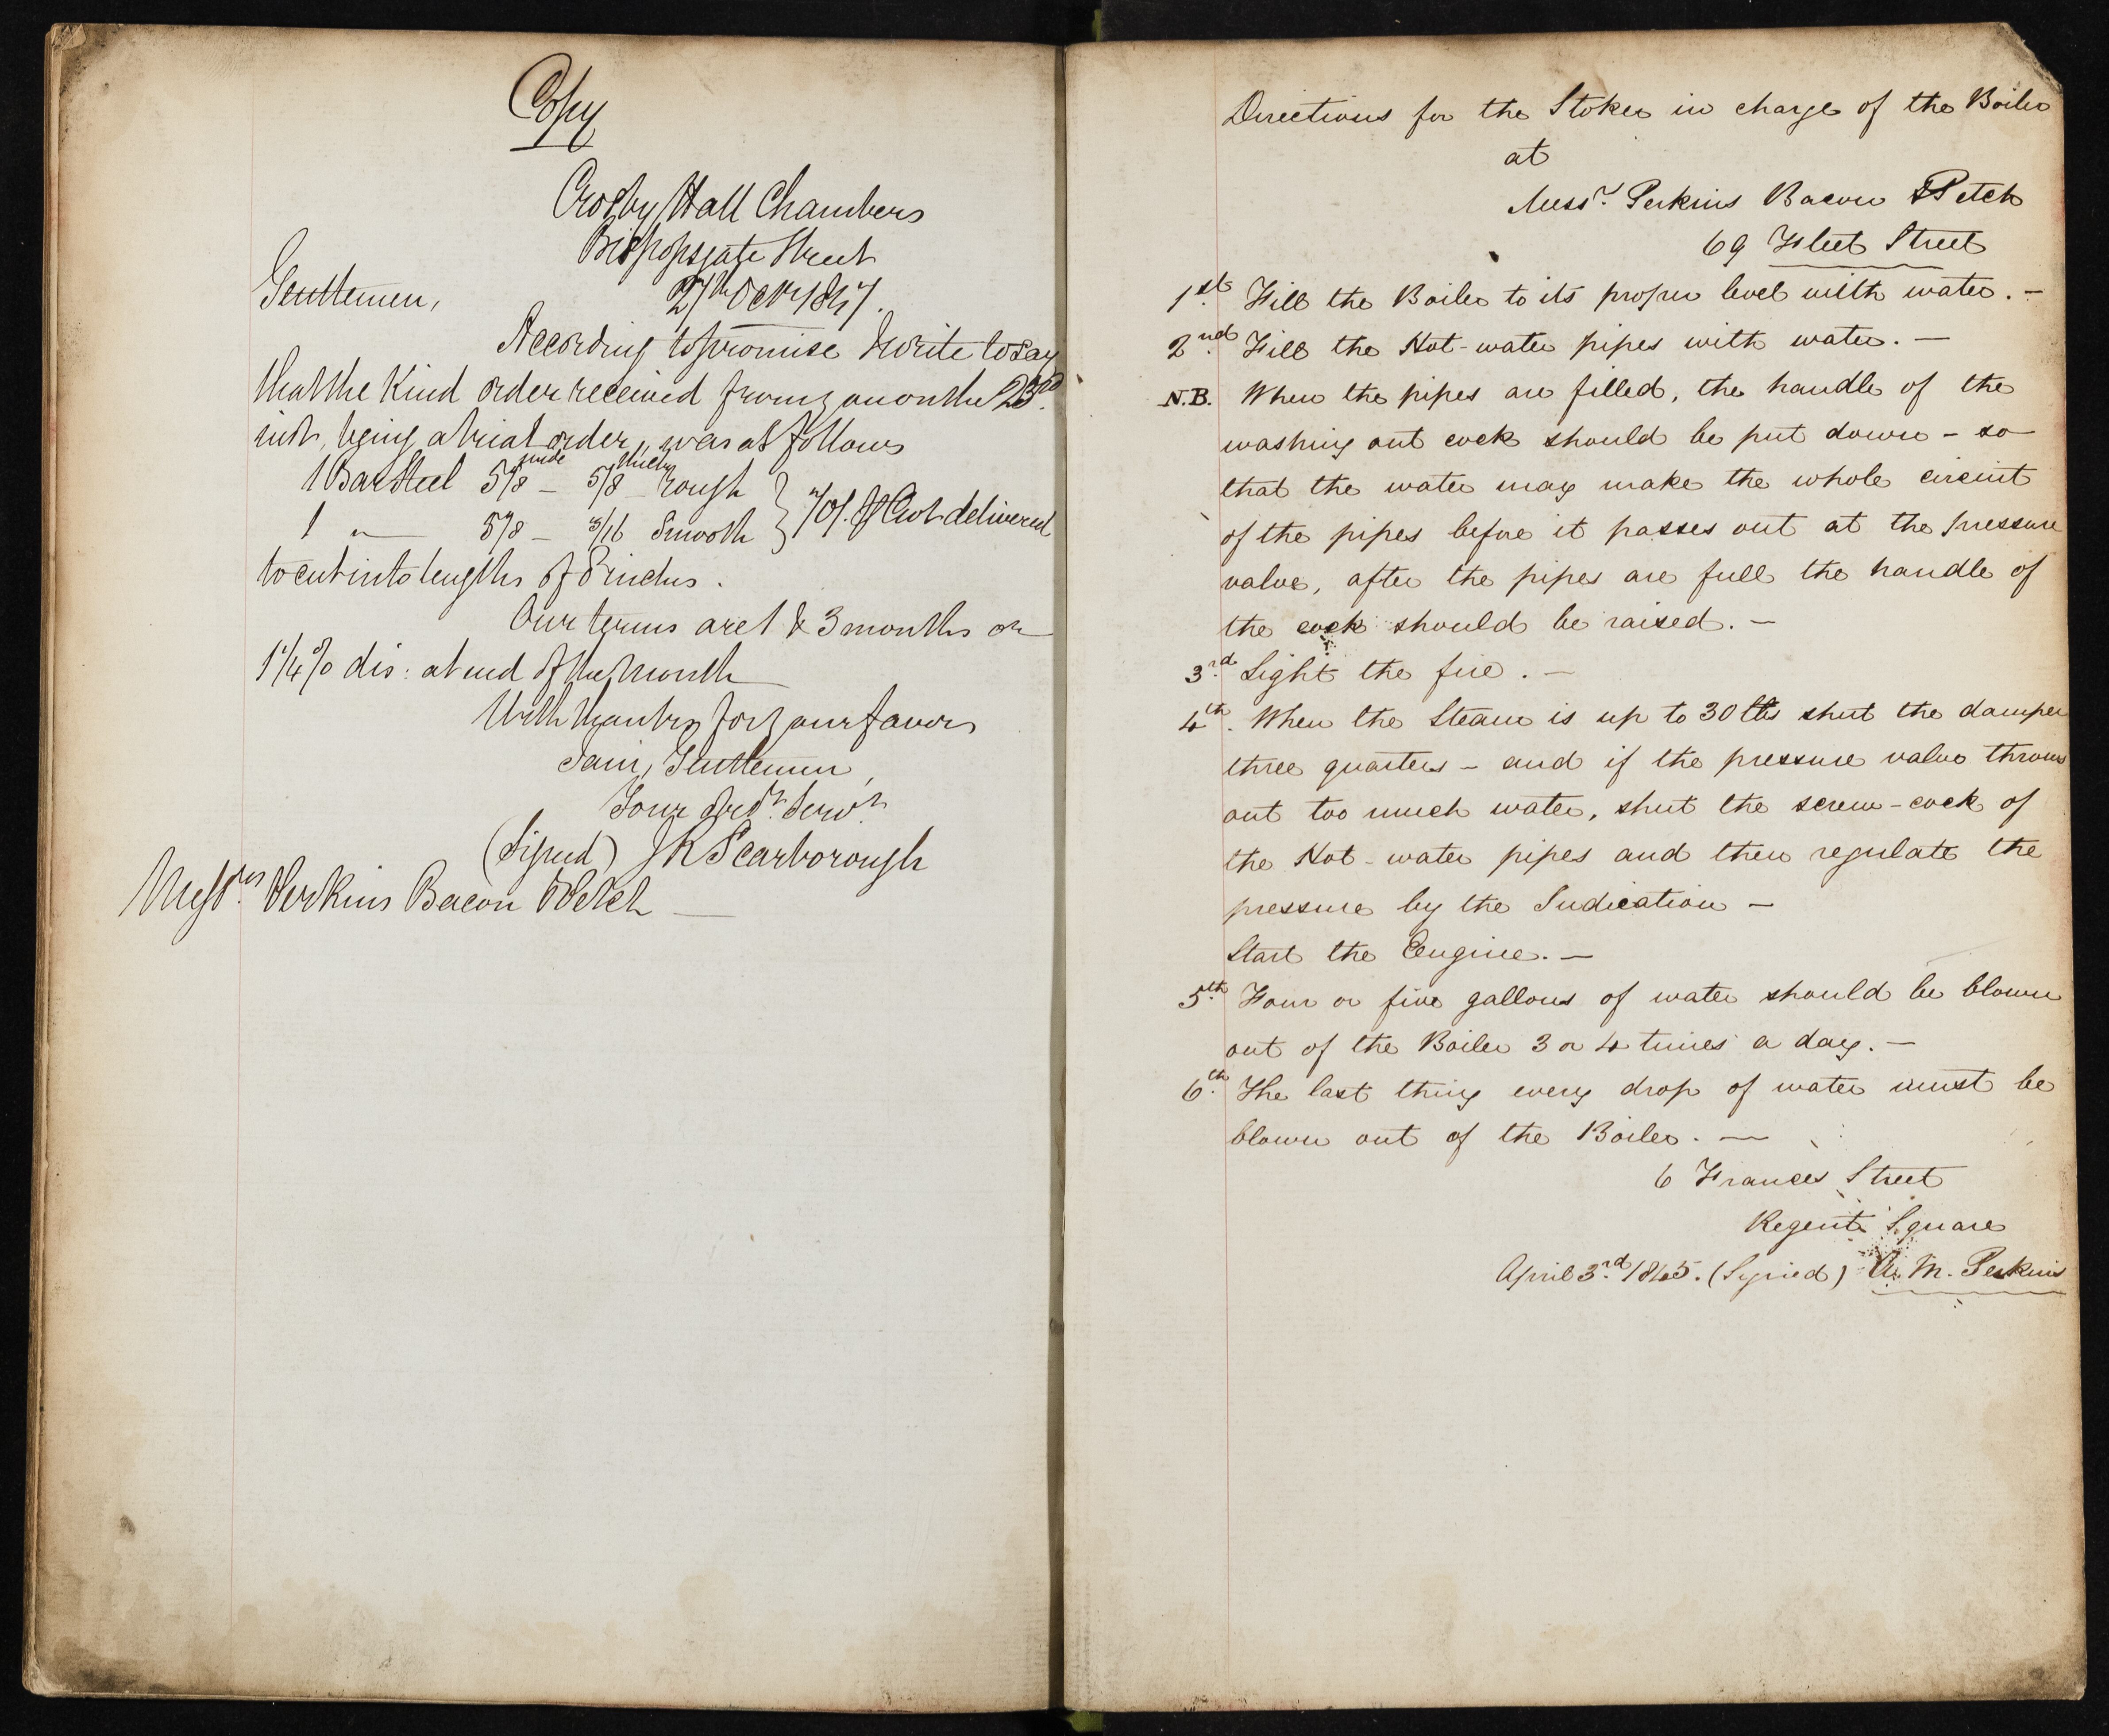 Copy
Crosby Hall Chambers
Bishopsgate Street
27th Octr 1847.
Gentlemen,
According to promise I write to say
that the kind order received from you on the 23rd
inst, being a trial order, was as follows
wide thick
1 Bar Steel 5/8 – 5/8 rough
1 " 5/8 – 3/16 Smooth } 70/. Pr Cwt delivered
to cut into lengths of 8 inches.
Our terms are 1 & 3 months or
1 1/4 % dis: at end of the Month
With thanks for your favors
I am, Gentlemen,
Your Obedt. Servt.
(Signed) JR Scarborough
Messrs. Perkins Bacon & Petch
Directions for the Stoker in charge of the Boiler
at
Messrs. Perkins Bacon & Petch
69 Fleet Street
1st. Fill the Boiler to its proper level with water. –
2nd. Fill the Hot-water pipes with water. –
N.B. When the pipes are filled, the handle of the
washing out cock should be put down – so
that the water may make the whole circuit
of the pipes before it passes out at the pressure
valve, after the pipes are full the handle of
the cock should be raised. –
3rd. Light the fire. –
4th. When the Steam is up to 30 lbs shut the damper
three quarters – and if the pressure valve throws
out too much water, shut the screw-cock of
the Hot-water pipes and then regulate the
pressure by the Indication –
Start the Engine. –
5th. Four or five gallons of water should be blown
out of the Boiler 3 or 4 times a day. –
6th. The last thing every drop of water must be
blown out of the Boiler. –
6 Frances Street
Regent Square
April 3rd. 1845. (Signed) A. M. Perkins